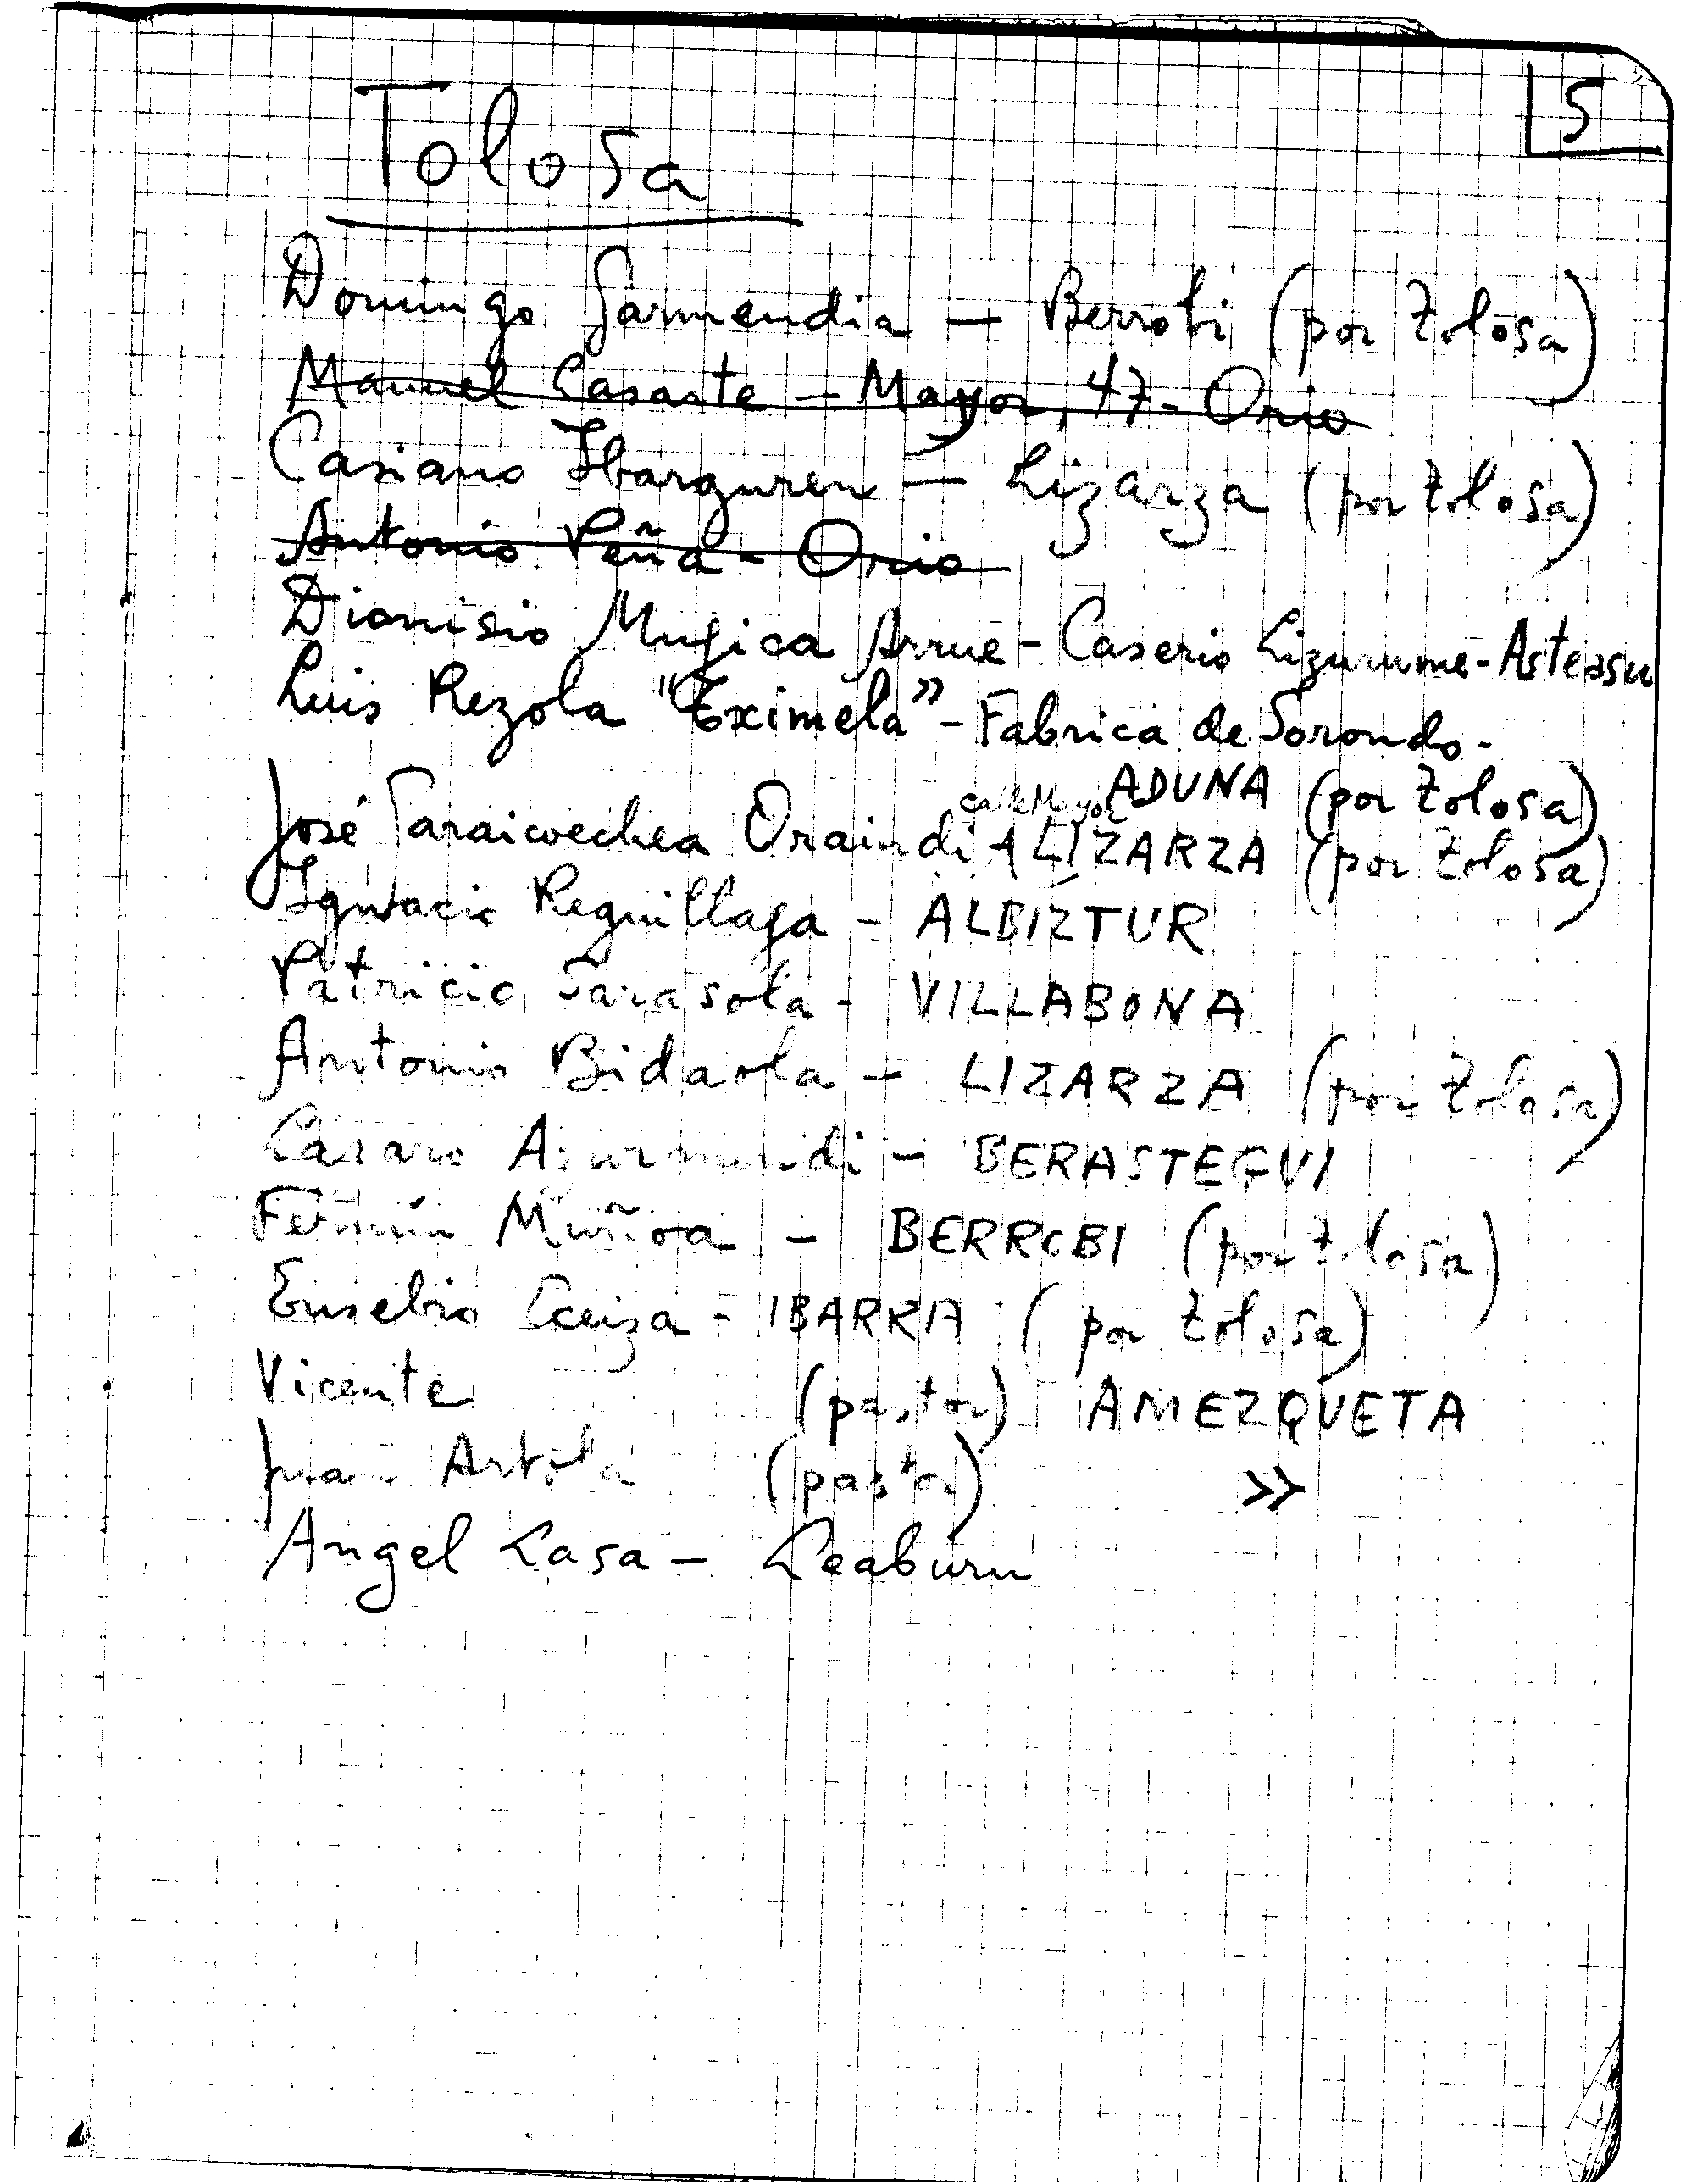 5
Tolosa
Domingo Garmendia — Berrobi (por Tolosa)
Manuel Casaste — Mayor, 47 - Orio
Casiano Ibarguren — Lizarza (por Tolosa)
Antonio Peña - Orio
Dionisio Mugica Arrue - Caserio Lizurume - Asteasu
Luis Rezola "Eximela" - Fabrica de Sorondo.
calle Mayor ADUNA (por Tolosa)
José Garaicoechea Oraindi - LIZARZA (por Tolosa)
Ignacio Reguillaga - ALBIZTUR
Patricio Sarasola - VILLABONA
Antonio Bidaola - LIZARZA (por Tolosa)
Lazaro Azurmendi - BERASTEGUI
Fermín Muñoa - BERROBI (por Tolosa)
Eusebio Eceiza - IBARRA (por Tolosa)
Vicente (pastor) AMEZQUETA
Juan Artola (pastor) »
Angel Lasa - Leaburu